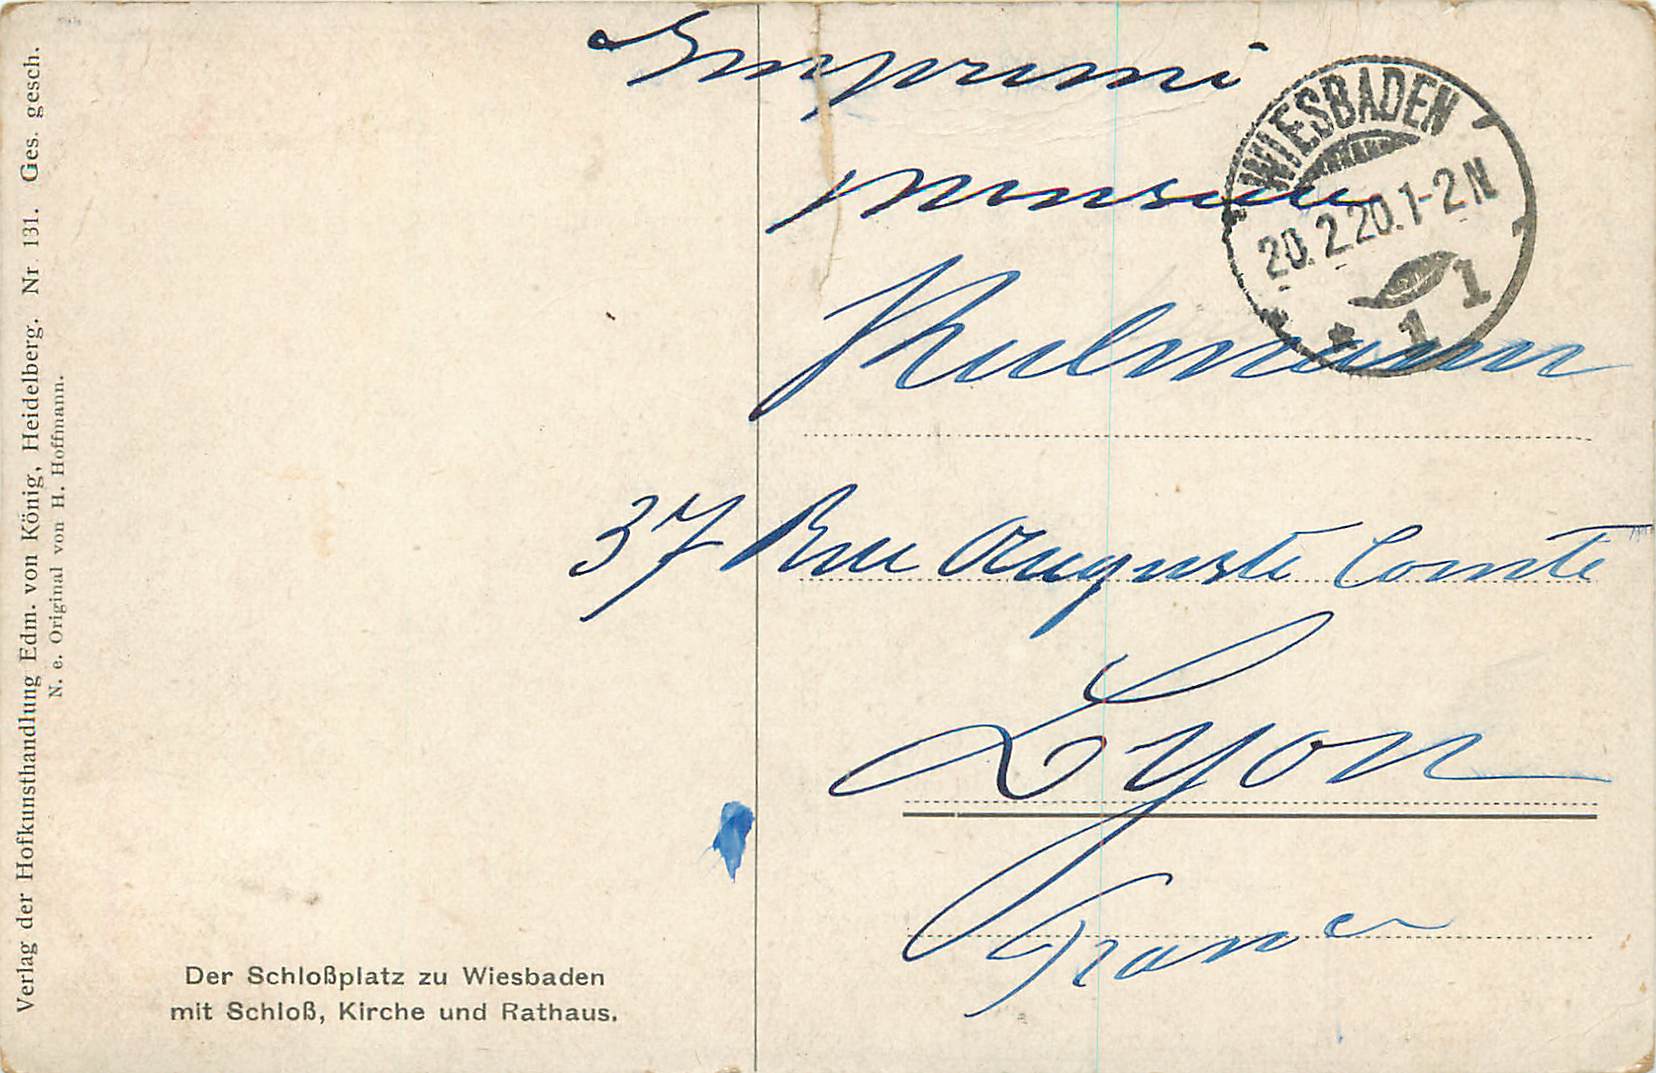 Verlag der Hofkunsthandlung Edm. von König, Heidelberg. Nr. 131. Ges. gesch.
N. e. Original von H. Hoffmann.
Imprimi
WIESBADEN
20.2.20.1-2N
* 1 1
Kulmann
37 Rue Auguste Comte
Lyon
France
Der Schloßplatz zu Wiesbaden
mit Schloß, Kirche und Rathaus.